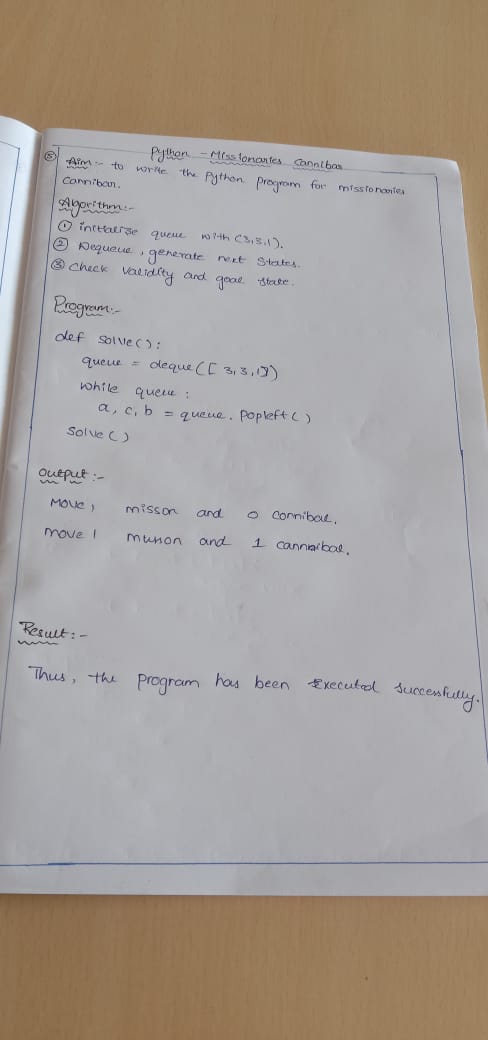 Python - Missionaries Cannibas
⑤ Aim:- to write the Python Program for missionaries
Canniban.
Algorithm:-
① initialise queue with (3,3,1).
② Dequeue, generate next States.
③ Check Validity and goal state.
Program:-
def solve():
queue = deque([3,3,1])
while queue:
a, c, b = queue.Popleft()
Solve()
Output:-
Move, misson and 0 connibal.
move 1 munon and 1 cannibal.
Result:-
Thus, the program has been Executed successfully.